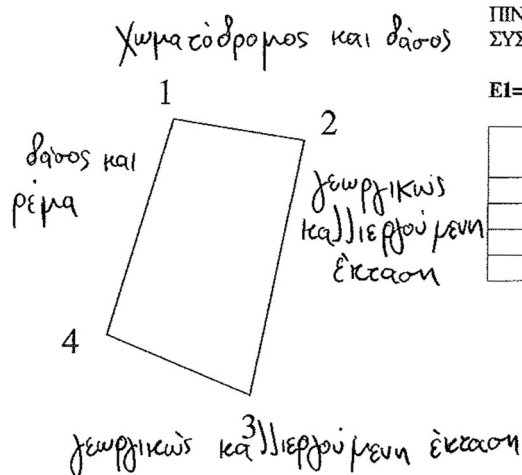 χωματόδρομος και δάσος
ΠΙΝ
ΣΥΣ
Ε1=
1
2
δάσος και
ρέμα
γεωργικώς
καλλιεργούμενη
έκταση
4
3
γεωργικώς καλλιεργούμενη έκταση